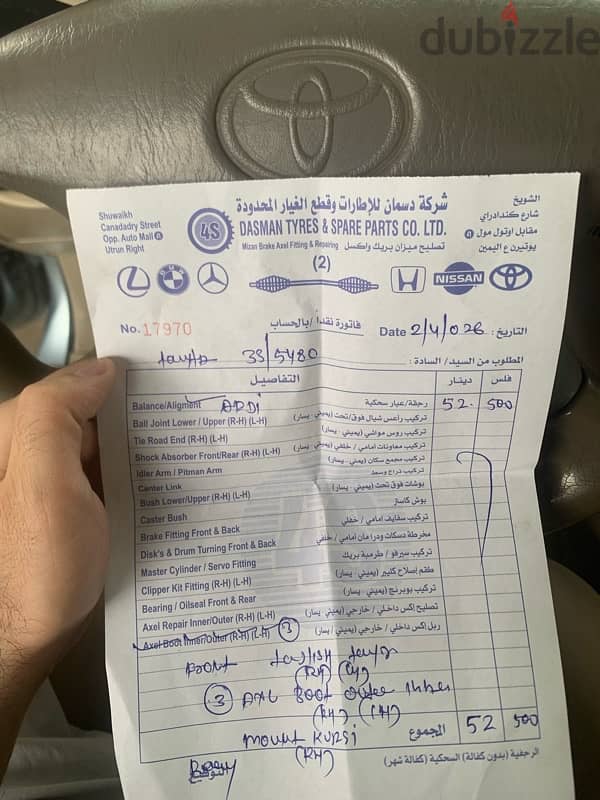 dubizzle
Shuwaikh
Canadadry Street
Opp. Auto Mall
Utrun Right
4S
شركة دسمان للإطارات وقطع الغيار المحدودة
DASMAN TYRES & SPARE PARTS CO. LTD.
Mizan Brake Axel Fitting & Repairing تصليح ميزان بريك واكسل
(2)
الشويخ
شارع كندادراي
مقابل اوتول مول
يوتيرن ع اليمين
NISSAN
No. 17970
فاتورة نقداً / بالحساب
Date 2/4/026 التاريخ :
35/5480 المطلوب من السيد / السادة :
التفاصيل دينار فلس
Balance/Aligment رحطة/عيار سحكية 52. 500
Ball Joint Lower / Upper (R-H) (L-H) تركيب راعس شيال فوق/تحت (يميني - يسار)
Tie Road End (R-H) (L-H) تركيب روس مواشي (يميني - يسار)
Shock Absorber Front/Rear (R-H) (L-H) تركيب معاونات أمامي / خلفي (يميني - يسار)
Idler Arm / Pitman Arm تركيب مجمع سكان (يميني - يسار)
Center Link تركيب ذراع وسط
Bush Lower/Upper (R-H) (L-H) بوشات فوق تحت (يميني - يسار)
Caster Bush بوش كاساز
Brake Fitting Front & Back تركيب سفايف امامي / خلفي
Disk's & Drum Turning Front & Back مخرطة دسكات ودرامان أمامي / خلفي
Master Cylinder / Servo Fitting تركيب سيرفو / طرمبة بريك
Clipper Kit Fitting (R-H) (L-H) طقم إصلاح كليبر (يميني - يسار)
Bearing / Oilseal Front & Rear تركيب بوبرنج (يميني - يسار)
Axel Repair Inner/Outer (R-H) (L-H) تصليح إكس داخلي / خارجي (يميني / يسار)
Axel Boot Inner/Outer (R-H) (L-H) 3 ربل إكس داخلي / خارجي (يميني / يسار)
Front
(RH) (LH)
3 AXL Boot outer inner
(RH) (LH)
Mount KURSI المجموع 52 500
(RH)
التوقيع
الرجعية (بدون كفالة) السحكية (كفالة شهر)